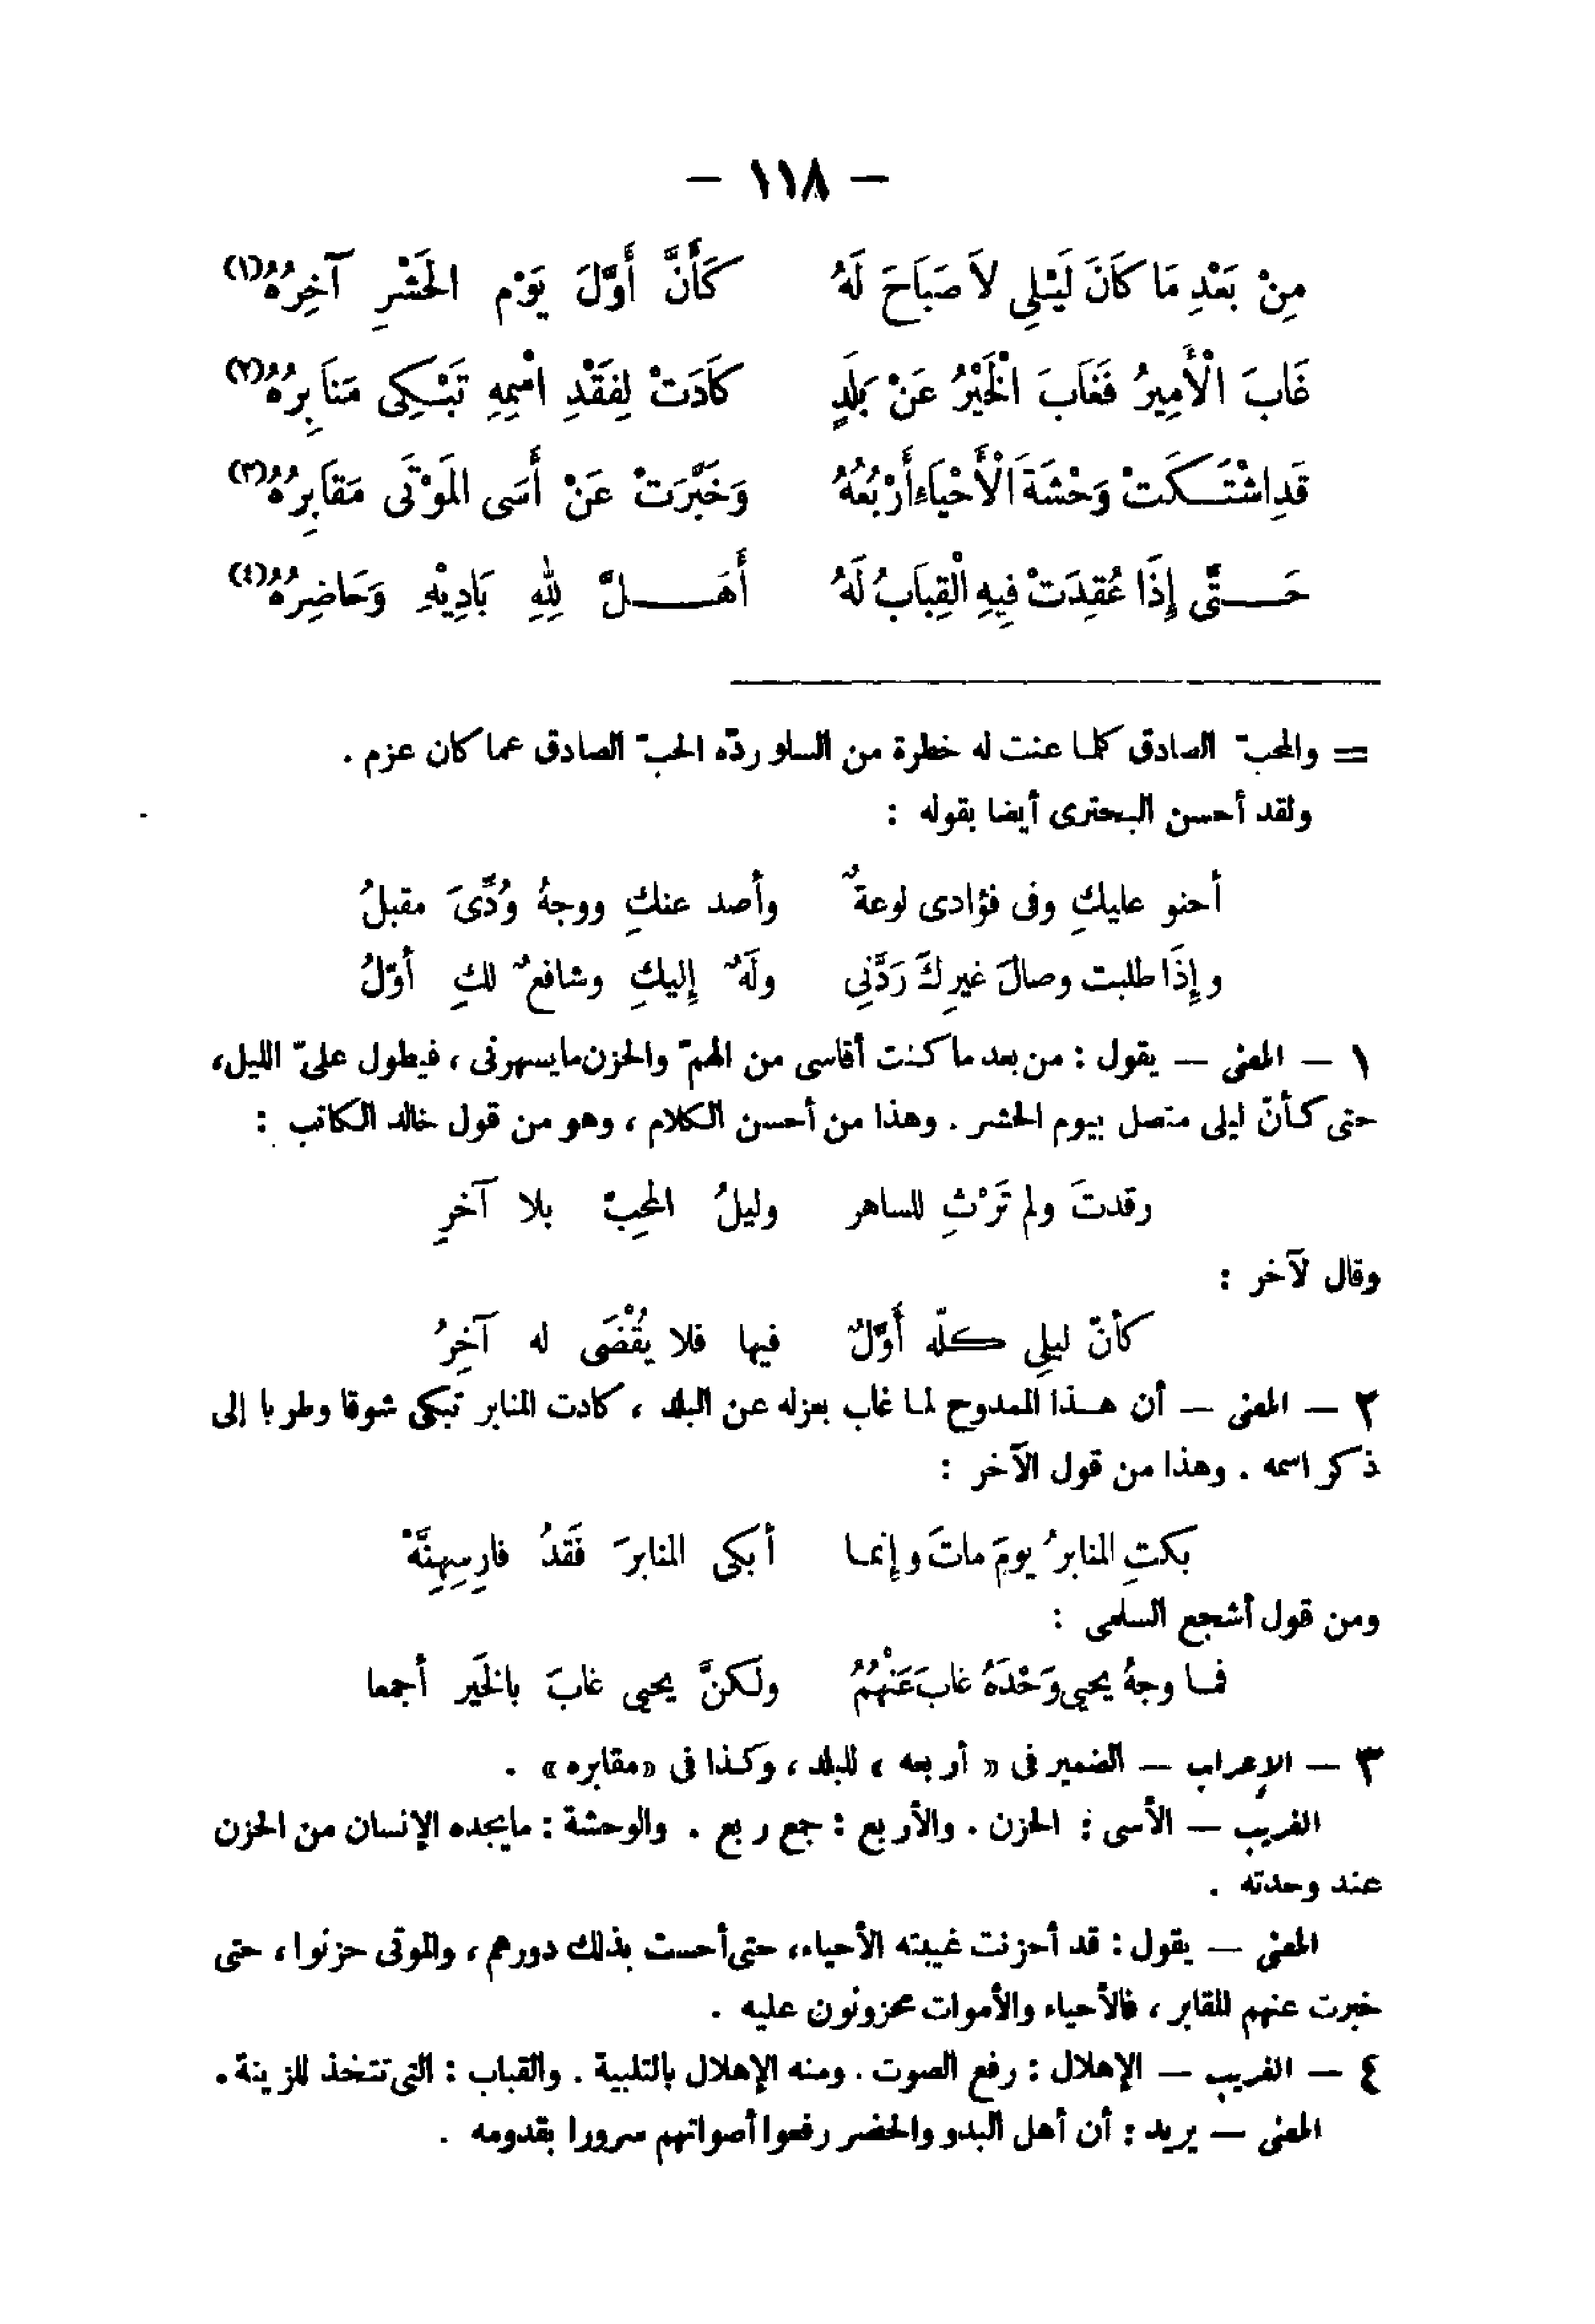 — ١١٨ —
مِنْ بَعْدِ مَا كَانَ لَيْلِى لاَ صَبَاحَ لَهُ كَأَنَّ أَوَّلَ يَوْمِ الحَشْرِ آخِرُهُ(١)
غَابَ الْأَمِيرُ فَغَابَ الْخَيْرُ عَنْ بَلَدٍ كَادَتْ لِفَقْدِ اسْمِهِ تَبْكِى مَنَابِرُهُ(٢)
قَدِ اشْتَكَتْ وَحْشَةَ الْأَحْيَاءِ أَرْبُعُهُ وَخَبَّرَتْ عَنْ أَسَى المَوْتَى مَقَابِرُهُ(٣)
حَتَّى إِذَا عُقِدَتْ فِيهِ الْقِبَابُ لَهُ أَهَلَّ لِلهِ بَادِيْهِ وَحَاضِرُهُ(٤)
= والمحبّ الصادق كلما عنت له خطرة من السلو ردّه الحبّ الصادق عما كان عزم .
ولقد أحسن البحترى أيضا بقوله :
أحنو عليكِ وفى فؤادى لوعةٌ وأصد عنكِ ووجهُ وُدِّىَ مقبلُ
وإِذَا طلبت وصالَ غيرِكَّ رَدَّنِى ولَهٌ إِليكِ وشافعٌ لكِ أوّلُ
١ — المعنى — يقول : من بعد ما كنت أقاسى من الهمّ والحزن ما يسهرنى ، فيطول علىّ الليل،
حتى كأنّ ليلى متصل بيوم الحشر . وهذا من أحسن الكلام ، وهو من قول خالد الكاتب :
رقدتَ ولم تَرْثِ للساهر وليلُ المحِبّ بلا آخرِ
وقال لآخر :
كأنّ ليلِى كلّه أَوّلٌ فيها فلا يُقْضَى له آخِرُ
٢ — المعنى — أن هذا الممدوح لما غاب بعزله عن البلد ، كادت المنابر تبكى شوقا وطربا إلى
ذكر اسمه . وهذا من قول الآخر :
بكتِ المنابرُ يومَ ماتَ وإنما أبكى المنابرَ فَقدُ فارِسِهِنَّهْ
ومن قول أشجع السلمى :
فما وجهُ يحيى وَحْدَهُ غابَ عَنْهُمُ ولَكنَّ يحيى غابَ بالخَير أجمعا
٣ — الإعراب — الضمير فى « أربعه » للبلد ، وكذا فى «مقابره» .
الغريب — الأسى : الحزن . والأربع : جمع ربع . والوحشة : ما يجده الإنسان من الحزن
عند وحدته .
المعنى — يقول : قد أحزنت غيبته الأحياء، حتى أحست بذلك دورهم ، والموتى حزنوا ، حتى
خبرت عنهم المقابر ، فالأحياء والأموات محزونون عليه .
٤ — الغريب — الإهلال : رفع الصوت . ومنه الإهلال بالتلبية . والقباب : التى تتخذ للزينة .
المعنى — يريد : أن أهل البدو والحضر رفعوا أصواتهم سرورا بقدومه .